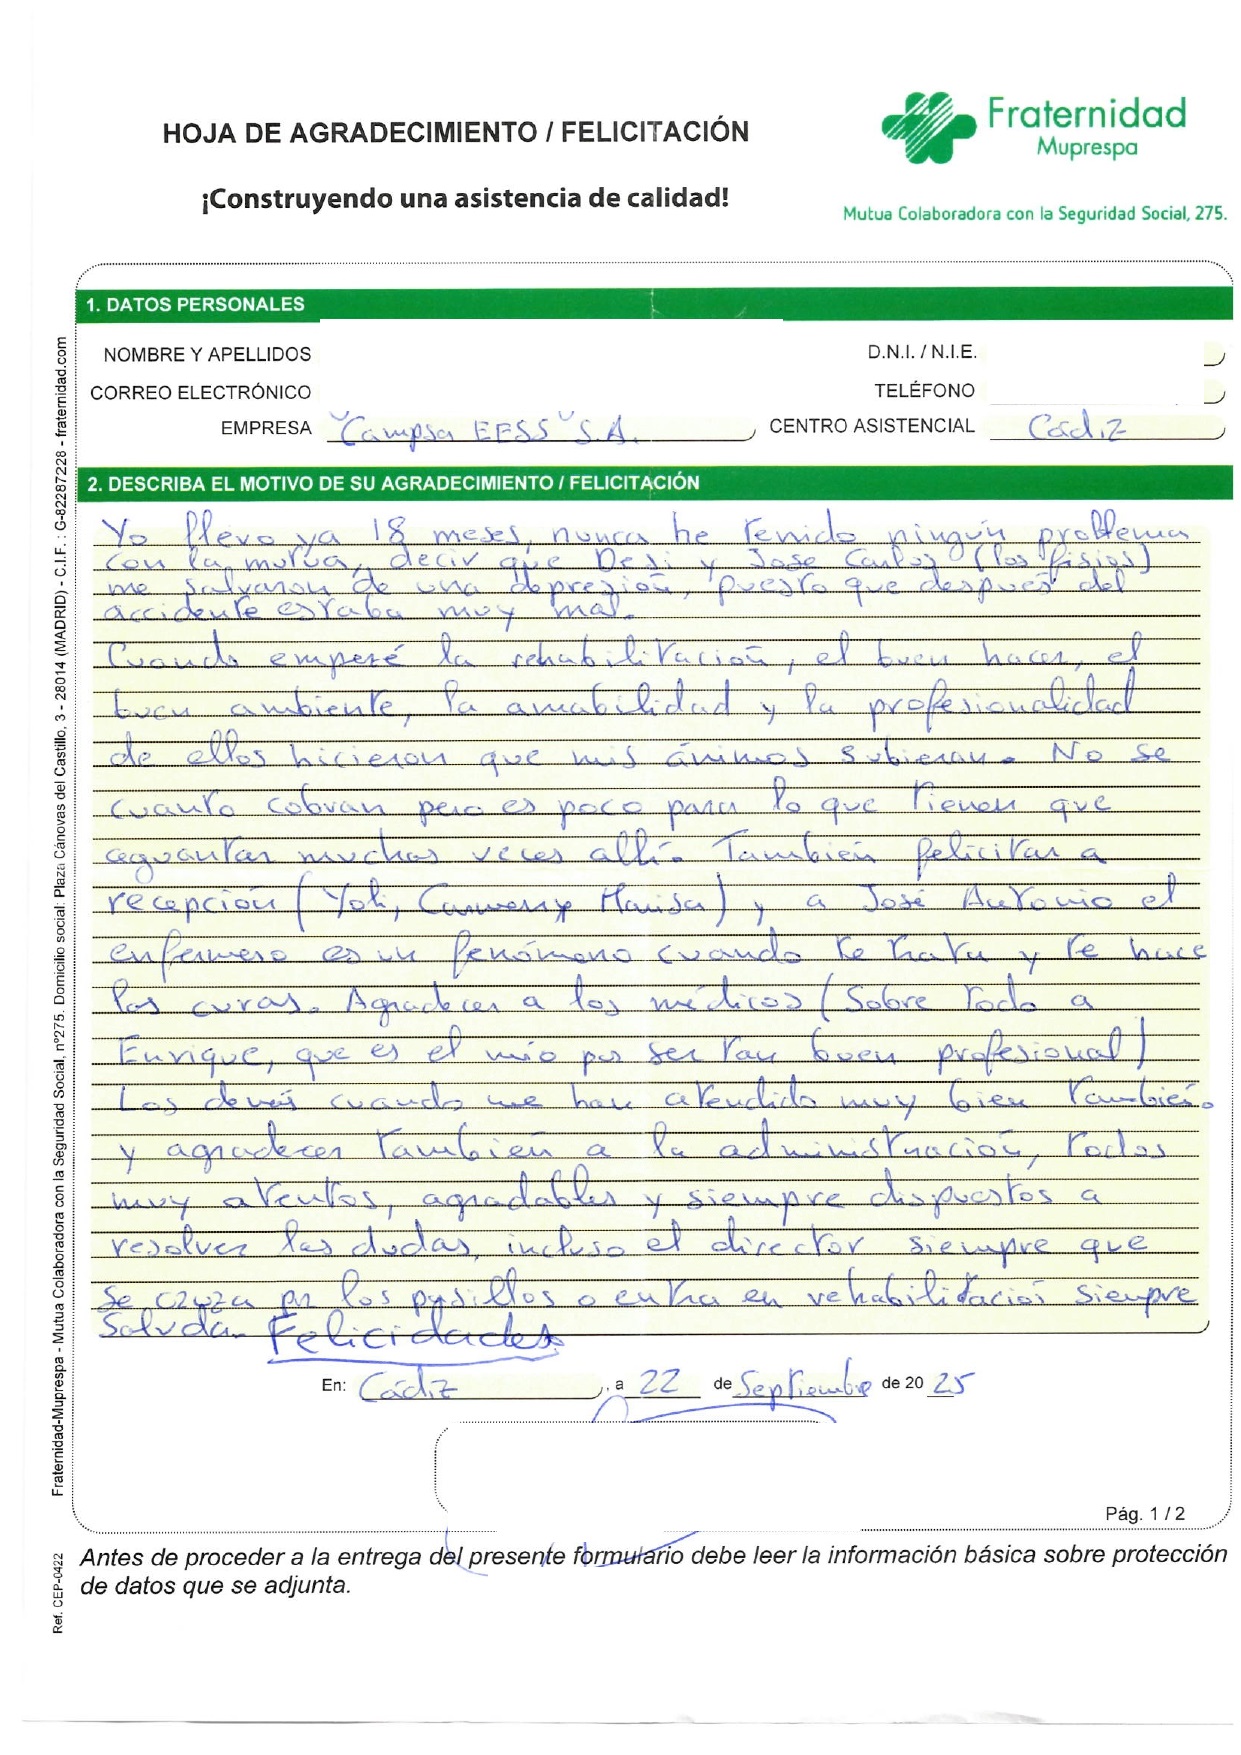 HOJA DE AGRADECIMIENTO / FELICITACIÓN
¡Construyendo una asistencia de calidad!
Fraternidad
Muprespa
Mutua Colaboradora con la Seguridad Social, 275.
1. DATOS PERSONALES
NOMBRE Y APELLIDOS
D.N.I. / N.I.E.
CORREO ELECTRÓNICO
TELÉFONO
EMPRESA Campsa EESS S.A.
CENTRO ASISTENCIAL Cádiz
2. DESCRIBA EL MOTIVO DE SU AGRADECIMIENTO / FELICITACIÓN
Yo llevo ya 18 meses, nunca he tenido ningún problema
con la mutua, decir que Desi y Jose Carlos (los fisios)
me salvaron de una depresión, puesto que después del
accidente estaba muy mal.
Cuando empecé la rehabilitación, el buen hacer, el
buen ambiente, la amabilidad y la profesionalidad
de ellos hicieron que mis ánimos subieran. No se
cuanto cobran pero es poco para lo que tienen que
aguantar muchas veces allí. También felicitar a
recepción (Yoli, Carmen y Marisa) y a José Antonio el
enfermero es un fenómeno cuando te trata y te hace
las curas. Agradecer a los médicos (Sobre todo a
Enrique, que es el mío por ser tan buen profesional)
Los demás cuando me han atendido muy bien también.
y agradecer también a la administración, todos
muy atentos, agradables y siempre dispuestos a
resolver las dudas, incluso el director siempre que
se cruza por los pasillos o entra en rehabilitación siempre
Saluda. Felicidades
En: Cádiz, a 22 de Septiembre de 20 25
Pág. 1 / 2
Antes de proceder a la entrega del presente formulario debe leer la información básica sobre protección
de datos que se adjunta.
Fraternidad-Muprespa - Mutua Colaboradora con la Seguridad Social, nº275. Domicilio social: Plaza Cánovas del Castillo, 3 - 28014 (MADRID) - C.I.F. : G-82287228 - fraternidad.com
Ref. CEP-0422